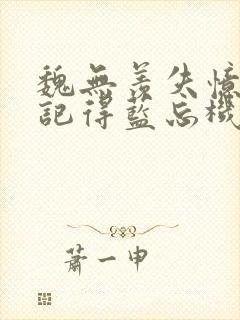 魏無羨失憶
記得藍忘機
蕭一申